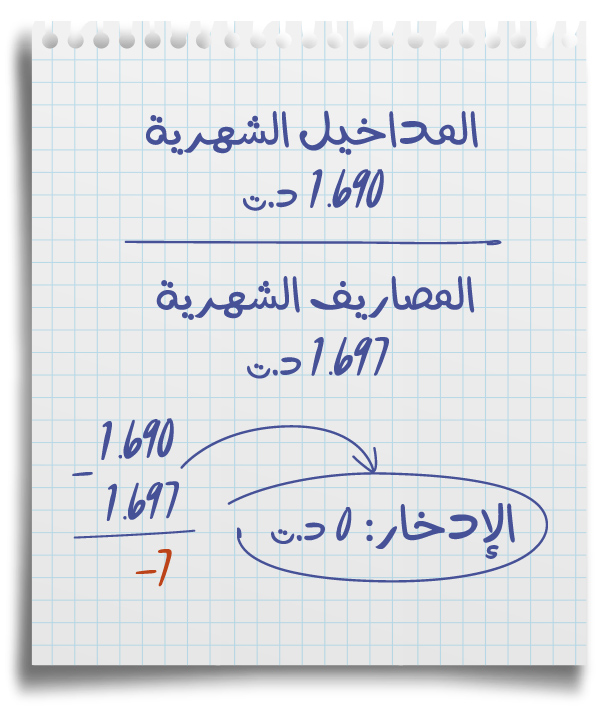 المداخيل الشهرية
1.690 د.ت
المصاريف الشهرية
1.697 د.ت
1.690
– 1.697
–7
الإدخار: 0 د.ت